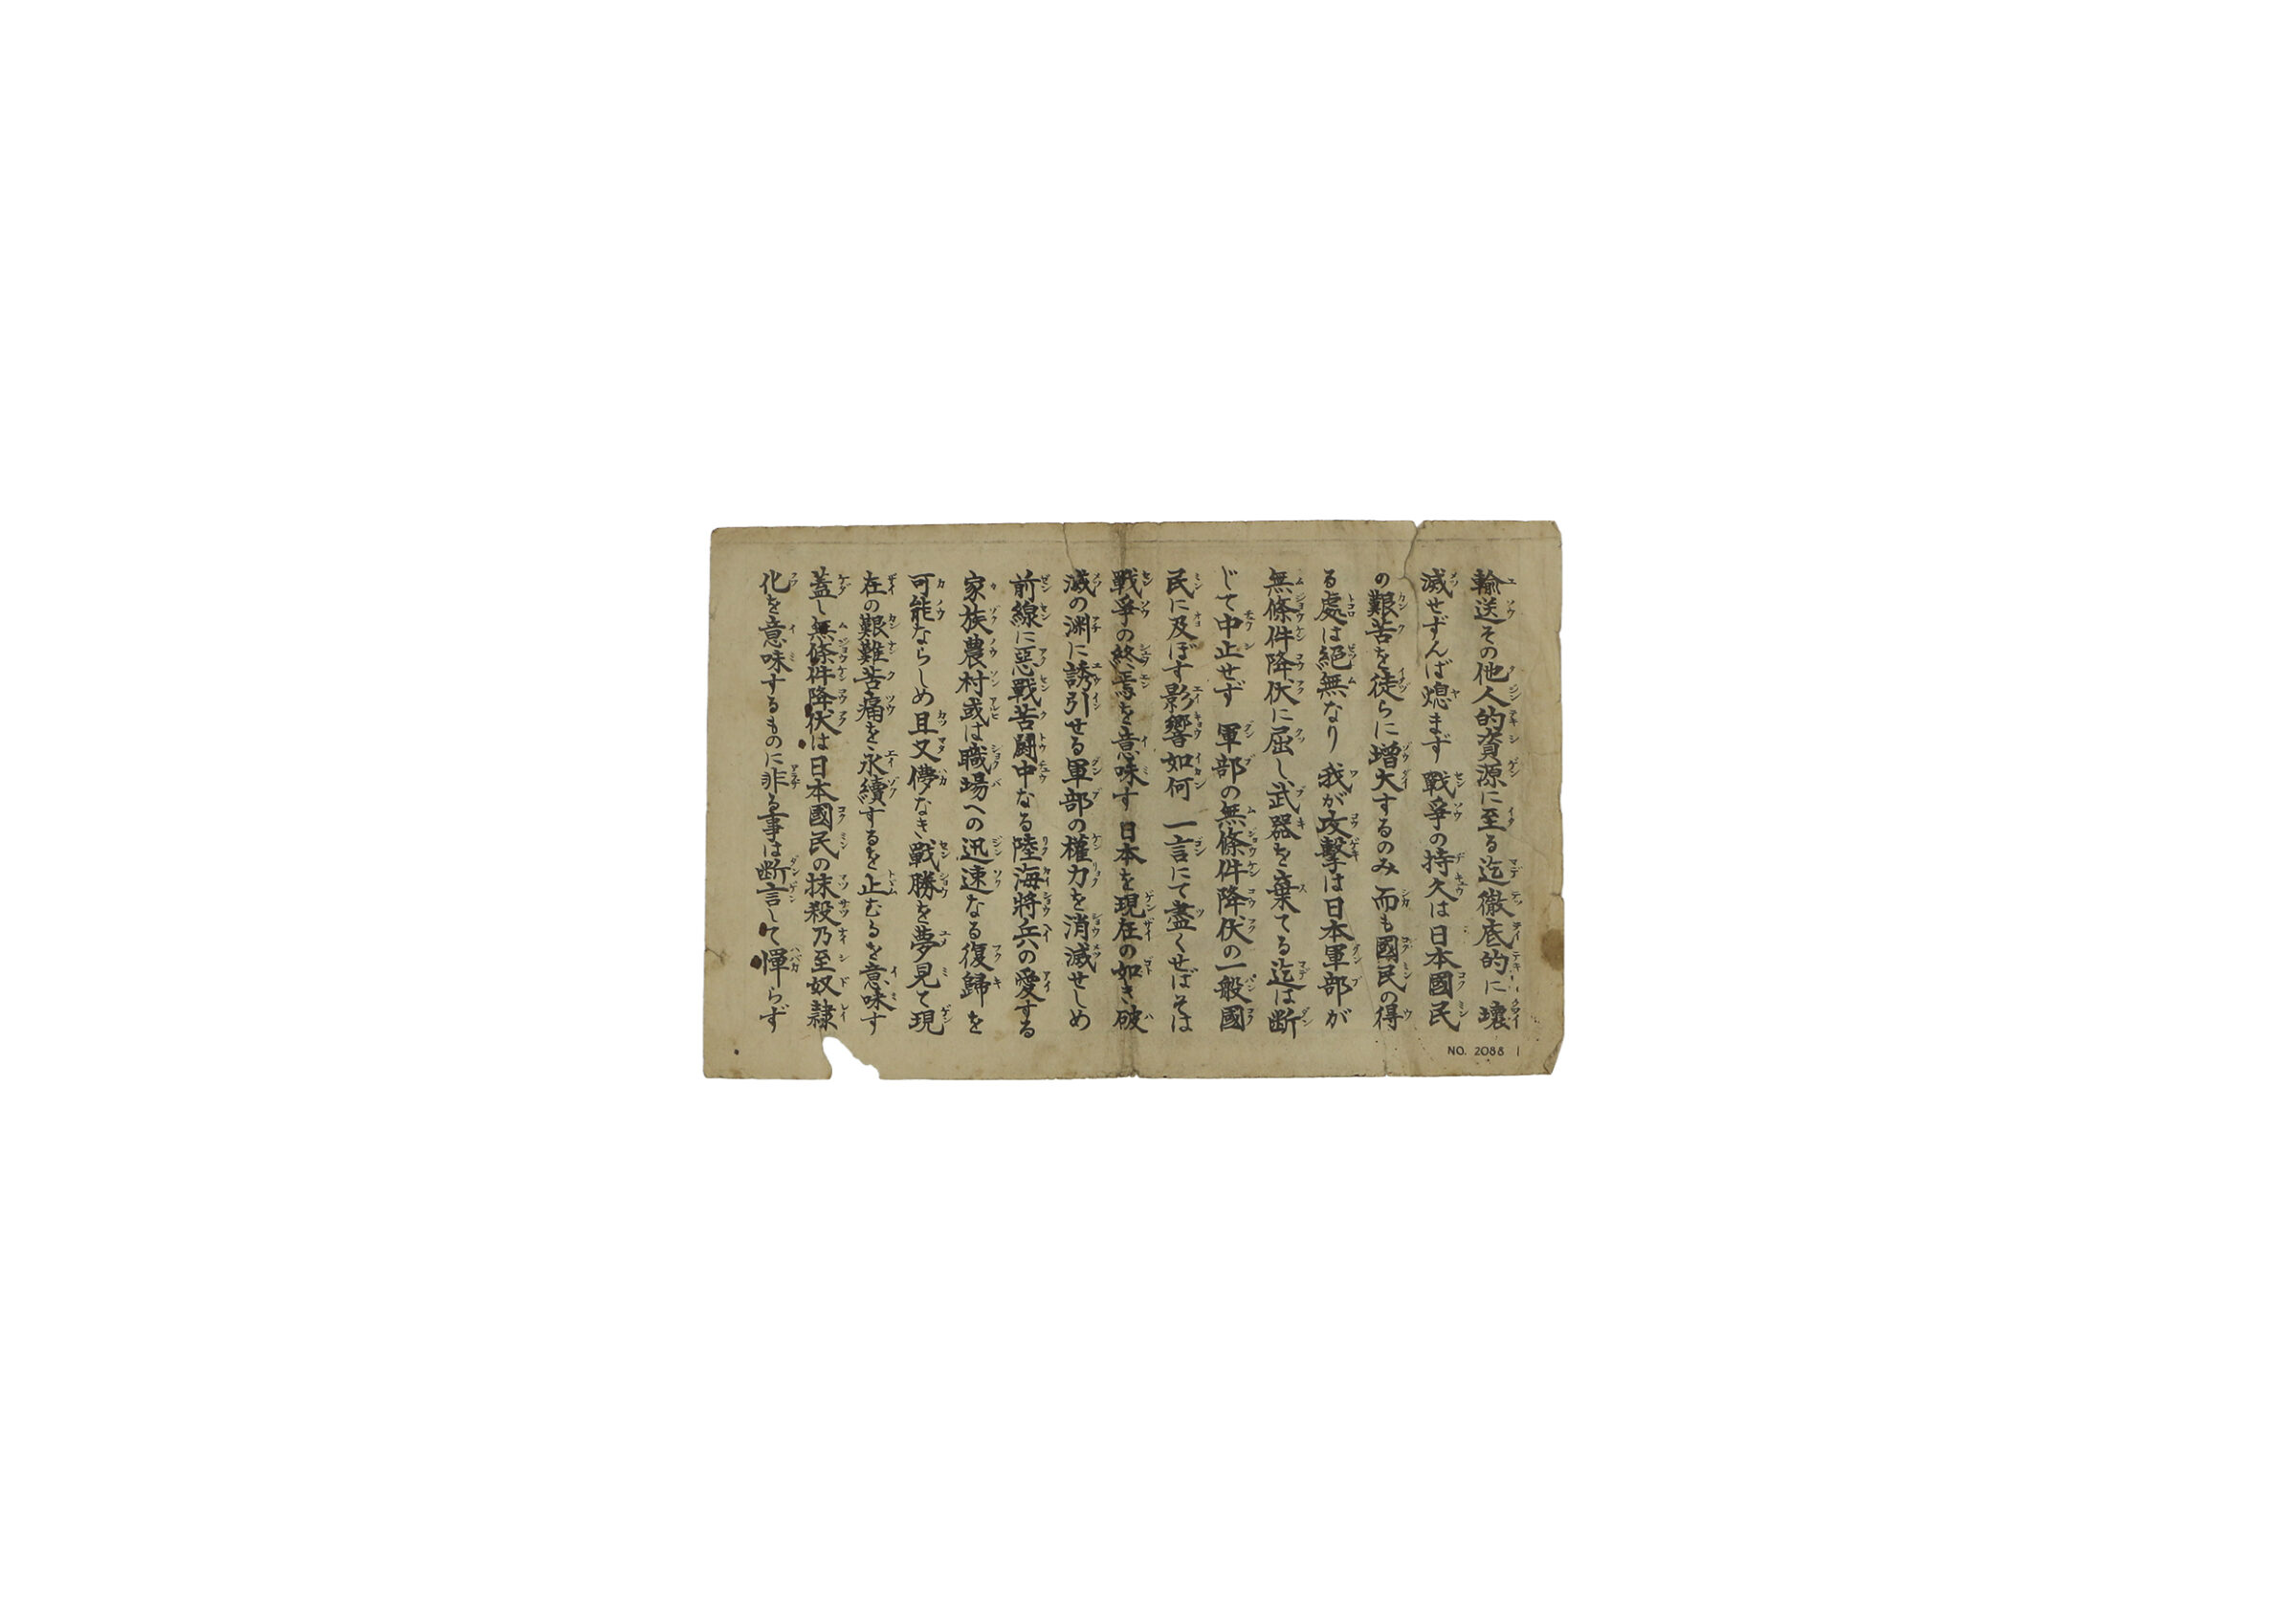 輸送その他人的資源に至る迄徹底的に壊
滅せずんば熄まず 戰爭の持久は日本國民
の艱苦を徒らに增大するのみ 而も國民の得
る處は絕無なり 我が攻擊は日本軍部が
無條件降伏に屈し武器を棄てる迄は断
じて中止せず 軍部の無條件降伏の一般國
民に及ぼす影響如何 一言にて盡くせばそは
戰爭の終焉を意味す 日本を現在の如き破
滅の渊に誘引せる軍部の權力を消滅せしめ
前線に惡戰苦鬪中なる陸海將兵の愛する
家族農村或は職場への迅速なる復歸を
可能ならしめ且又儚なき戰勝を夢見て現
在の艱難苦痛を永續するを止むるを意味す
蓋し無條件降伏は日本國民の抹殺乃至奴隷
化を意味するものに非る事は断言して憚らず
NO. 2088